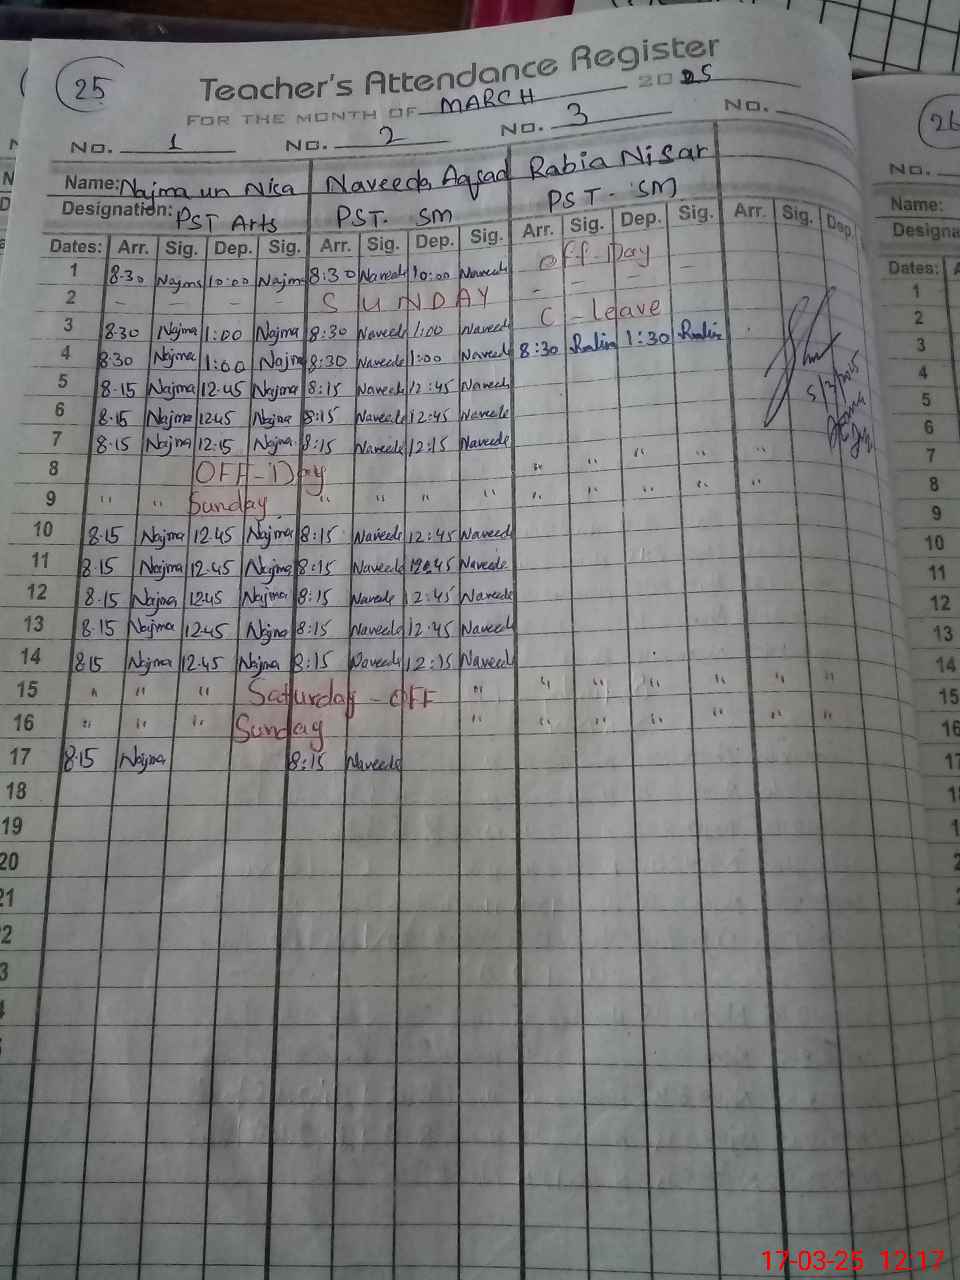 25
Teacher's Attendance Register
FOR THE MONTH OF MARCH 2025
No. 1 No. 2 No. 3 No.
Name: Najma un Nisa Naveeda Rabia Nisar
Designation: PST Arts PST. SM PST - SM
Dates: Arr. Sig. Dep. Sig. Arr. Sig. Dep. Sig. Arr. Sig. Dep. Sig. Arr. Sig. Dep.
1 8-30 Najma 10:00 Najm 8:30 Naveeda 10:00 Naveeda off-Day
2 - - - - SUNDAY - - -
3 8-30 Najma 1:00 Najma 8:30 Naveeda 1:00 Naveed C-leave
4 8-30 Najma 1:00 Najm 8:30 Naveeda 1:00 Naveed 8:30 Rabia 1:30 Rabia
5 8-15 Najma 12-45 Najma 8:15 Naveeda 12:45 Naveeda
6 8-15 Najma 12-45 Najma 8:15 Naveeda 12:45 Naveeda
7 8-15 Najma 12-15 Najma 8:15 Naveeda 12:15 Naveeda
8 OFF-Day " " " " " "
9 " " Sunday " " " " " " " " "
10 8-15 Najma 12-45 Najma 8:15 Naveeda 12:45 Naveed
11 8-15 Najma 12-45 Najma 8:15 Naveeda 12:45 Naveeda
12 8-15 Najma 12-45 Najma 8:15 Naveeda 12:45 Naveeda
13 8-15 Najma 12-45 Najma 8:15 Naveeda 12:45 Naveed
14 8-15 Najma 12-45 Najma 8:15 Naveeda 12:15 Naveed
15 " " " Saturday - OFF " " " " " " "
16 " " " Sunday " " " " " " "
17 8-15 Najma 8:15 Naveeda
18
19
20
21
2
3
26
No.
Name:
Designa
Dates:
1
2
3
4
5
6
7
8
9
10
11
12
13
14
15
16
17-03-25 12:17